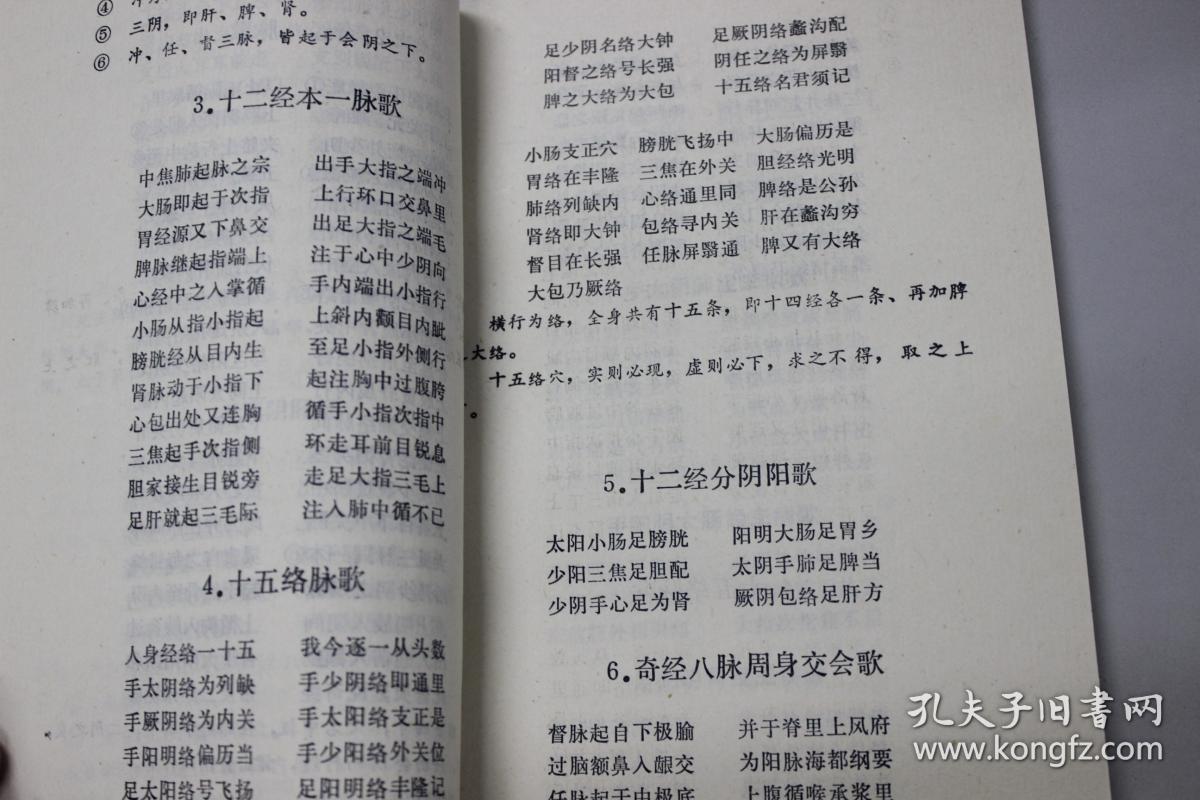 ④
⑤ 三阴，即肝、脾、肾。
⑥ 冲、任、督三脉，皆起于会阴之下。
3.十二经本一脉歌
中焦肺起脉之宗 出手大指之端冲
大肠即起于次指 上行环口交鼻里
胃经源又下鼻交 出足大指之端毛
脾脉继起指端上 注于心中少阴向
心经中之入掌循 手内端出小指行
小肠从指小指起 上斜内颧目内眦
膀胱经从目内生 至足小指外侧行
肾脉动于小指下 起注胸中过腹胯
心包出处又连胸 循手小指次指中
三焦起手次指侧 环走耳前目锐息
胆家接生目锐旁 走足大指三毛上
足肝就起三毛际 注入肺中循不已
4.十五络脉歌
人身经络一十五 我今逐一从头数
手太阴络为列缺 手少阴络即通里
手厥阴络为内关 手太阳络支正是
手阳明络偏历当 手少阳络外关位
足太阳络号飞扬 足阳明络丰隆记
足少阴名络大钟 足厥阴络蠡沟配
阳督之络号长强 阴任之络为屏翳
脾之大络为大包 十五络名君须记
小肠支正穴 膀胱飞扬中 大肠偏历是
胃络在丰隆 三焦在外关 胆经络光明
肺络列缺内 心络通里同 脾络是公孙
肾络即大钟 包络寻内关 肝在蠡沟穷
督目在长强 任脉屏翳通 脾又有大络
大包乃厥络
横行为络，全身共有十五条，即十四经各一条、再加脾
大络。
十五络穴，实则必现，虚则必下，求之不得，取之上
。
5.十二经分阴阳歌
太阳小肠足膀胱 阳明大肠足胃乡
少阳三焦足胆配 太阴手肺足脾当
少阴手心足为肾 厥阴包络足肝方
6.奇经八脉周身交会歌
督脉起自下极腧 并于脊里上风府
过脑额鼻入龈交 为阳脉海都纲要
任脉起于中极底 上腹循喉承浆里
孔夫子旧书网
www.kongfz.com